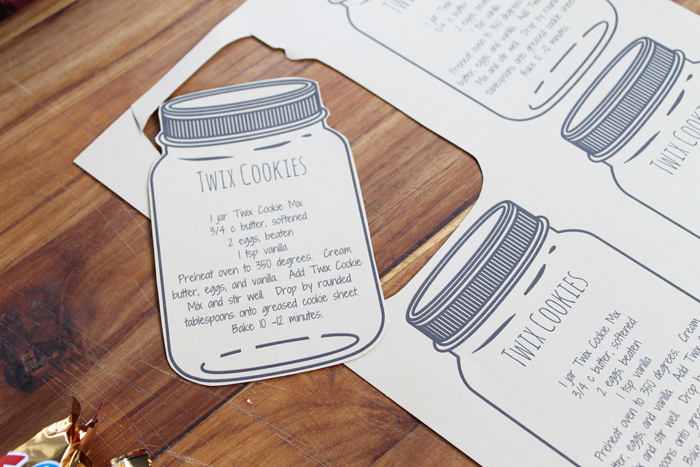 TWIX COOKIES
1 jar Twix Cookie Mix
3/4 c butter, softened
2 eggs, beaten
1 tsp vanilla
Preheat oven to 350 degrees. Cream
butter, eggs, and vanilla. Add Twix Cookie
Mix and stir well. Drop by rounded
tablespoons onto greased cookie sheet.
Bake 10 -12 minutes.
1 jar T
3/4 c butter
2 eggs
1 tsp vanilla
Preheat oven to 350 degrees
butter, eggs, and vanilla. Add
Mix and stir well. Drop by
tablespoons onto greased cookie sheet.
Bake 10 -12 minutes.
TWIX CO
TWIX COOKIES
1 jar Twix Cookie Mix
3/4 c butter, softened
2 eggs, beaten
1 tsp vanilla
Preheat oven to 350 degrees. Cream
butter, eggs, and vanilla. Add
Mix and stir well. Drop b